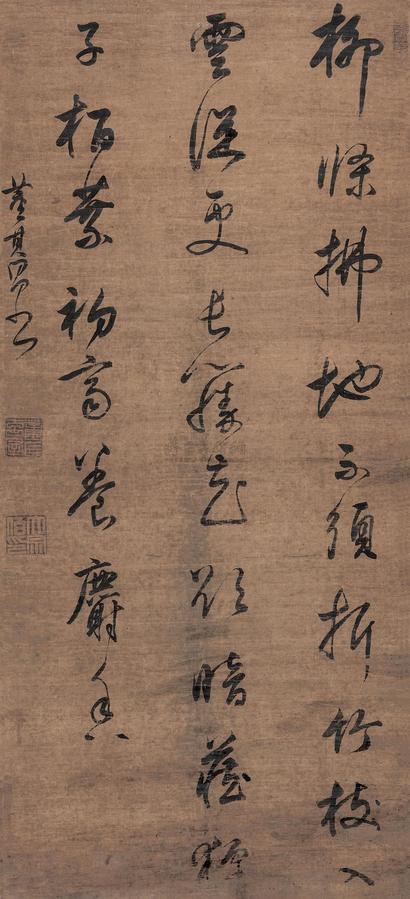 柳條拂地不須折竹枝入
雲從更長藤花欲暗藏猱
子柏葉初齊養麝香
董其昌書